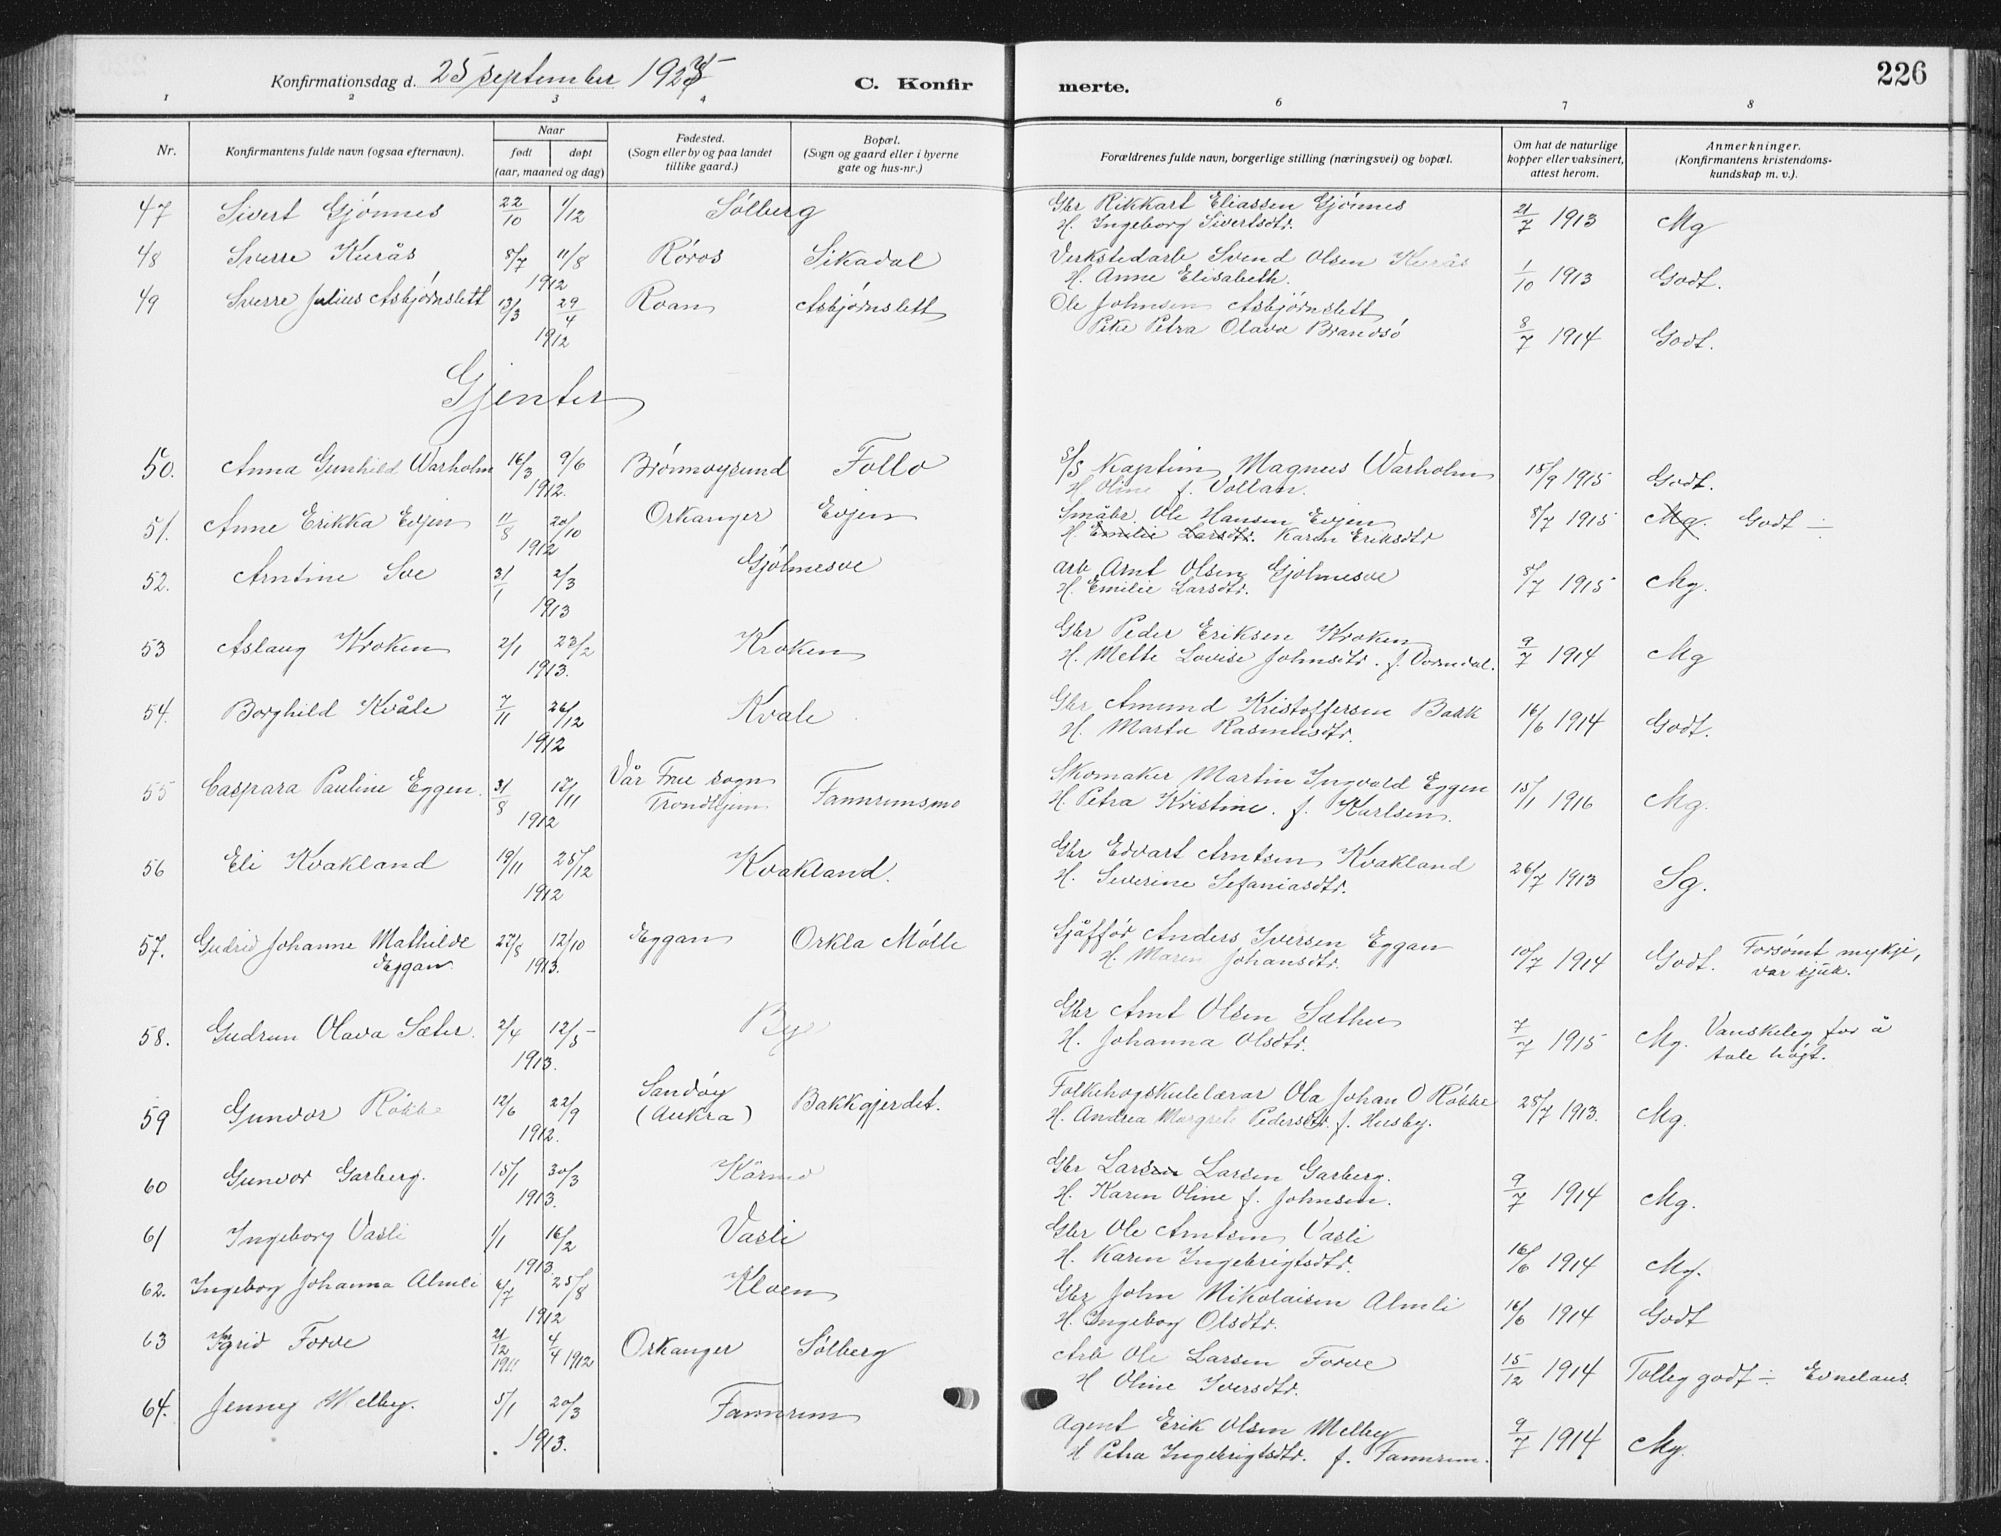 226
Konfirmationsdag d. 25 september 192
C. Konfirmerte.
1 2 3 4 6 7 8
Nr. | Konfirmantens fulde navn (ogsaa efternavn). | Naar født døpt (aar, maaned og dag) | Fødested. (Sogn eller by og paa landet tillike gaard.) | Bopæl. (Sogn og gaard eller i byerne gate og hus-nr.) | Forældrenes fulde navn, borgerlige stilling (næringsvei) og bopæl. | Om hat de naturlige kopper eller vaksinert, attest herom. | Anmerkninger. (Konfirmantens kristendomskundskap m. v.).
47 Sivert Gjønnes 22/10 1/12 Sølberg Gbr Rikkart Eliassen Gjønnes 21/7 1913 Mg
H. Ingeborg Sivertsdtr.
48 Sverre Kurås 8/7 11/8 Røros Sikadal Verkstedarb Svend Olsen Kurås 1/10 1913 Godt.
1912 H. Anne Elisabeth.
49 Sverre Julius Asbjørnslett 13/3 29/4 Roan Asbjørnslett Ole Johnsen Asbjørnslett 8/7 1914 Godt.
1912 Pike Petra Olava Brandsö
Gjenter
50. Anna Gunhild Warholm 16/3 9/6 Brønnøysund Follo S/S Kaptein Magnus Warholm 15/9 1915 Godt.
1912. H. Oline f. Vollan.
51. Anne Erikka Evjen 11/8 20/10 Orkanger Evjen Småbr. Ole Hansen Evjen 8/7 1915 Mg. Godt ÷
1912 H. Emilie Larsdtr. Karen Eriksdtr
52. Arntine Sve 31/1 2/3 Gjølmesve arb Arnt Olsen Gjølmesve 8/7 1915 Mg.
1913 H. Emilie Larsdtr.
53 Aslaug Kroken 2/1 23/2 Kroken Gbr Peder Eriksen Kroken 9/7 1914 Mg
1913. H. Mette Lovise Johnsdtr. f. Vormdal.
54. Borghild Kvåle 7/11 26/12 Kvale Gbr Amund Kristoffersen Bakk 16/6 1914 Godt.
1912 H. Marta Rasmusdtr.
55 Caspara Pauline Eggen. 31/8 17/11 Vår Frue sogn Trondhjem Fannremsmo Skomaker Martin Ingvald Eggen 15/1 1916 Mg.
1912 H. Petra Kristine. f. Karlsen.
56 Eli Kvakland 19/11 25/12 Kvakland. Gbr Edvart Arntsen Kvakland 26/7 1913 Sg.
1912 H. Severine Sefaniasdtr.
57. Gudrid Johanne Mathilde Eggan. 27/8 12/10 Eggan Orkla Mølle Sjåffør Anders Iversen Eggan 10/7 1914 Godt. Forsømt mykje, var sjuk.
1913. H. Maren Johansdtr.
58. Gudrun Olava Sæter. 2/4 12/5 By Gbr Arnt Olsen Sæther 7/7 1915 Mg. Vanskeleg for å tale høgt.
1913. H. Johanna Olsdtr.
59 Gunvor Røkke 12/6 22/9 Sandøy (Aukra) Bakkgjerdet. Folkehøgskulelærar Ola Johan O Røkke 28/7 1913. Mg.
1912. H. Andrea Margrete Pedersdtr. f. Husby.
60 Gunvor Garberg. 15/1 30/3 Kårmo Gbr Larsen Larsen Garberg. 9/7 1914 Mg.
1913. H. Karen Oline f. Johnsen.
61 Ingeborg Vasli 1/1 16/2 Vasli Gbr Ole Arntsen Vasli 16/6 1914 Mg.
1913. H. Karen Ingebrigtsdtr.
62. Ingeborg Johanna Almli 6/7 25/8 Kloen Gbr John Nikolaisen Almli 16/6 1914 Godt
1912 H. Ingeborg Olsdtr.
63 Ingrid Forve 21/12 1911 4/4 1912 Orkanger Sølberg Arb Ole Larsen Forve 15/12 1914 Tolleg godt ÷ Evnelaus.
H Oline Iversdtr.
64. Jenney Melby. 5/1 20/3 Fannrem Agent Erik Olsen Melby 9/7 1914 Mg.
1913. H Petra Ingebrigtsdtr. f. Fannrem.